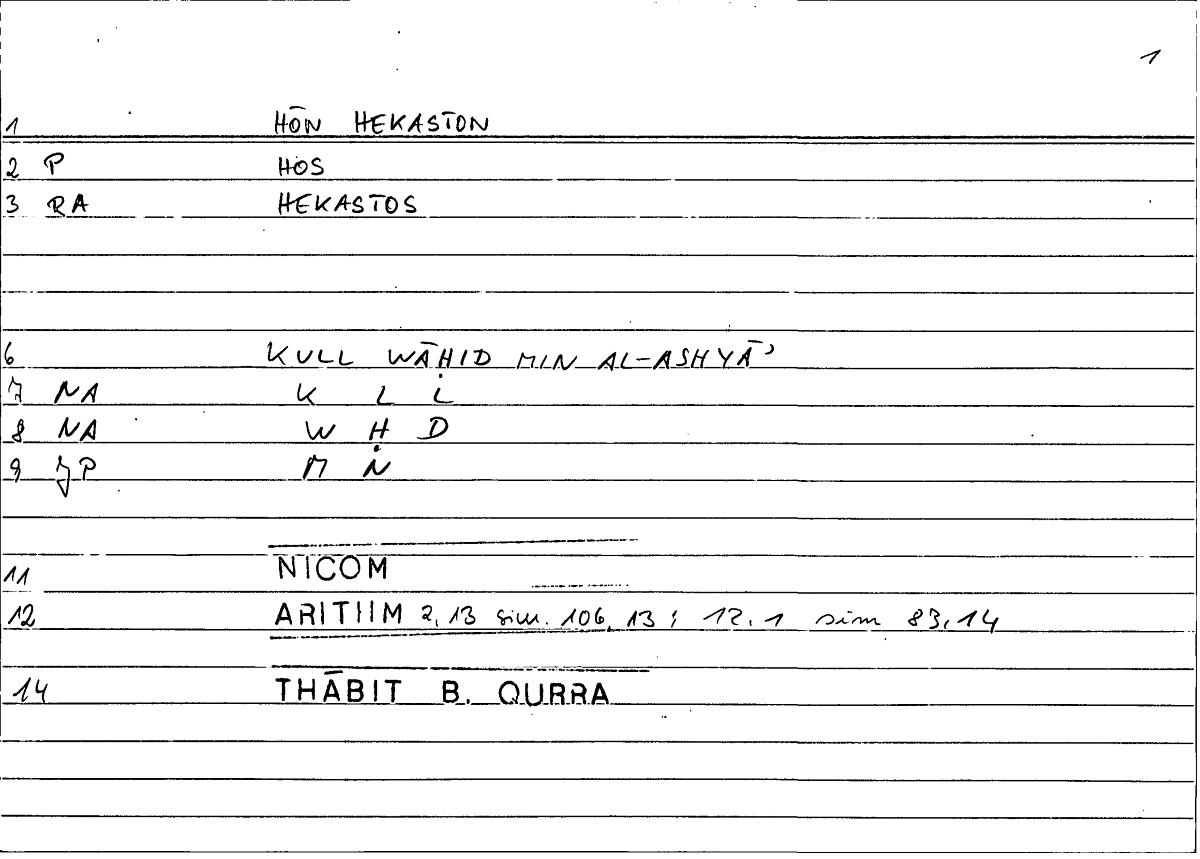 1
1 HŌN HEKASTON
2 P HOS
3 RA HEKASTOS
6 KULL WĀḤID MIN AL-ASHYĀʾ
7 NA K L L
8 NA W Ḥ D
9 JP M N
11 NICOM
12 ARITHM 2,13 sim. 106,13; 12,1 sim 83,14
14 THĀBIT B. QURRA